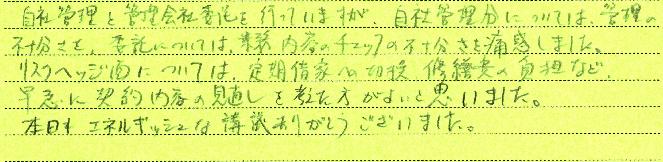 自社管理と管理会社委託を行っていますが、自社管理分については、管理の
不十分さを、委託については、業務内容のチェックの不十分さを痛感しました。
リスクヘッジ面については、定期借家への切換、修繕費の負担など、
早急に契約内容の見直しを考えた方がよいと思いました。
本日も エネルギッシュな講義ありがとうございました。